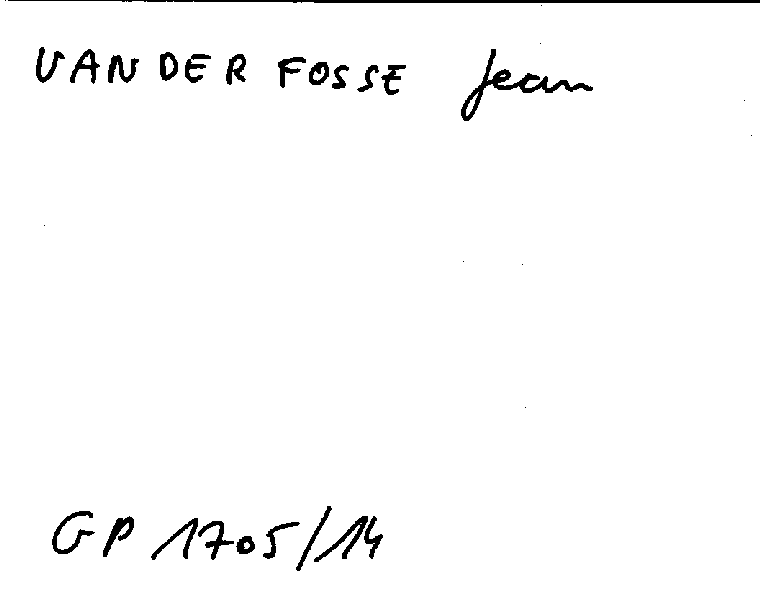 VAN DER FOSSE Jean
GP 1705/14